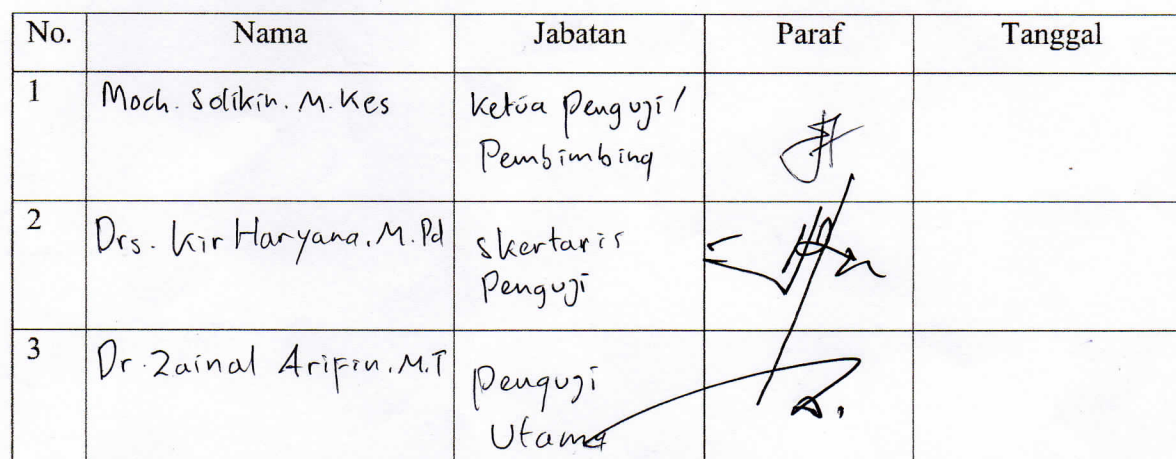 No. Nama Jabatan Paraf Tanggal
1 Moch. Solikin. M. Kes Ketua Penguji /
Pembimbing
2 Drs. Kir Haryana. M. Pd skertaris
Penguji
3 Dr. Zainal Arifin. M.T Penguji
Utama